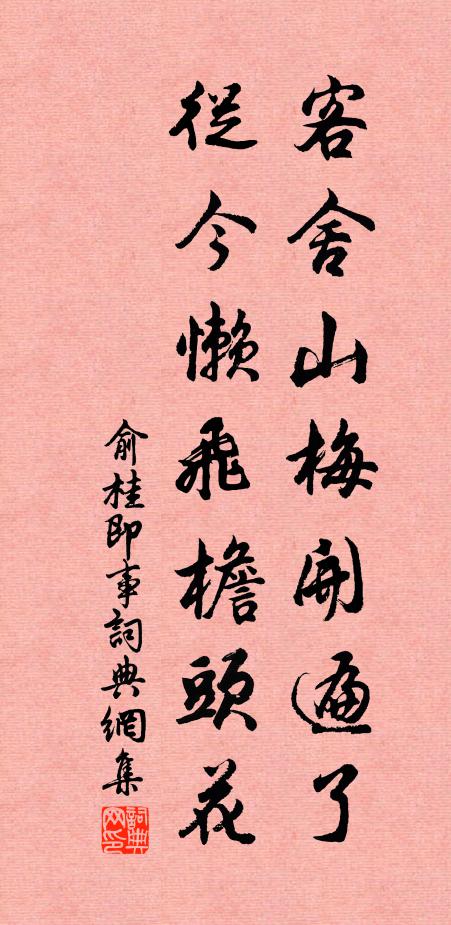 客舍山梅開遍了
從今懶飛檐頭花
俞桂即事詞典網集
詞典網印